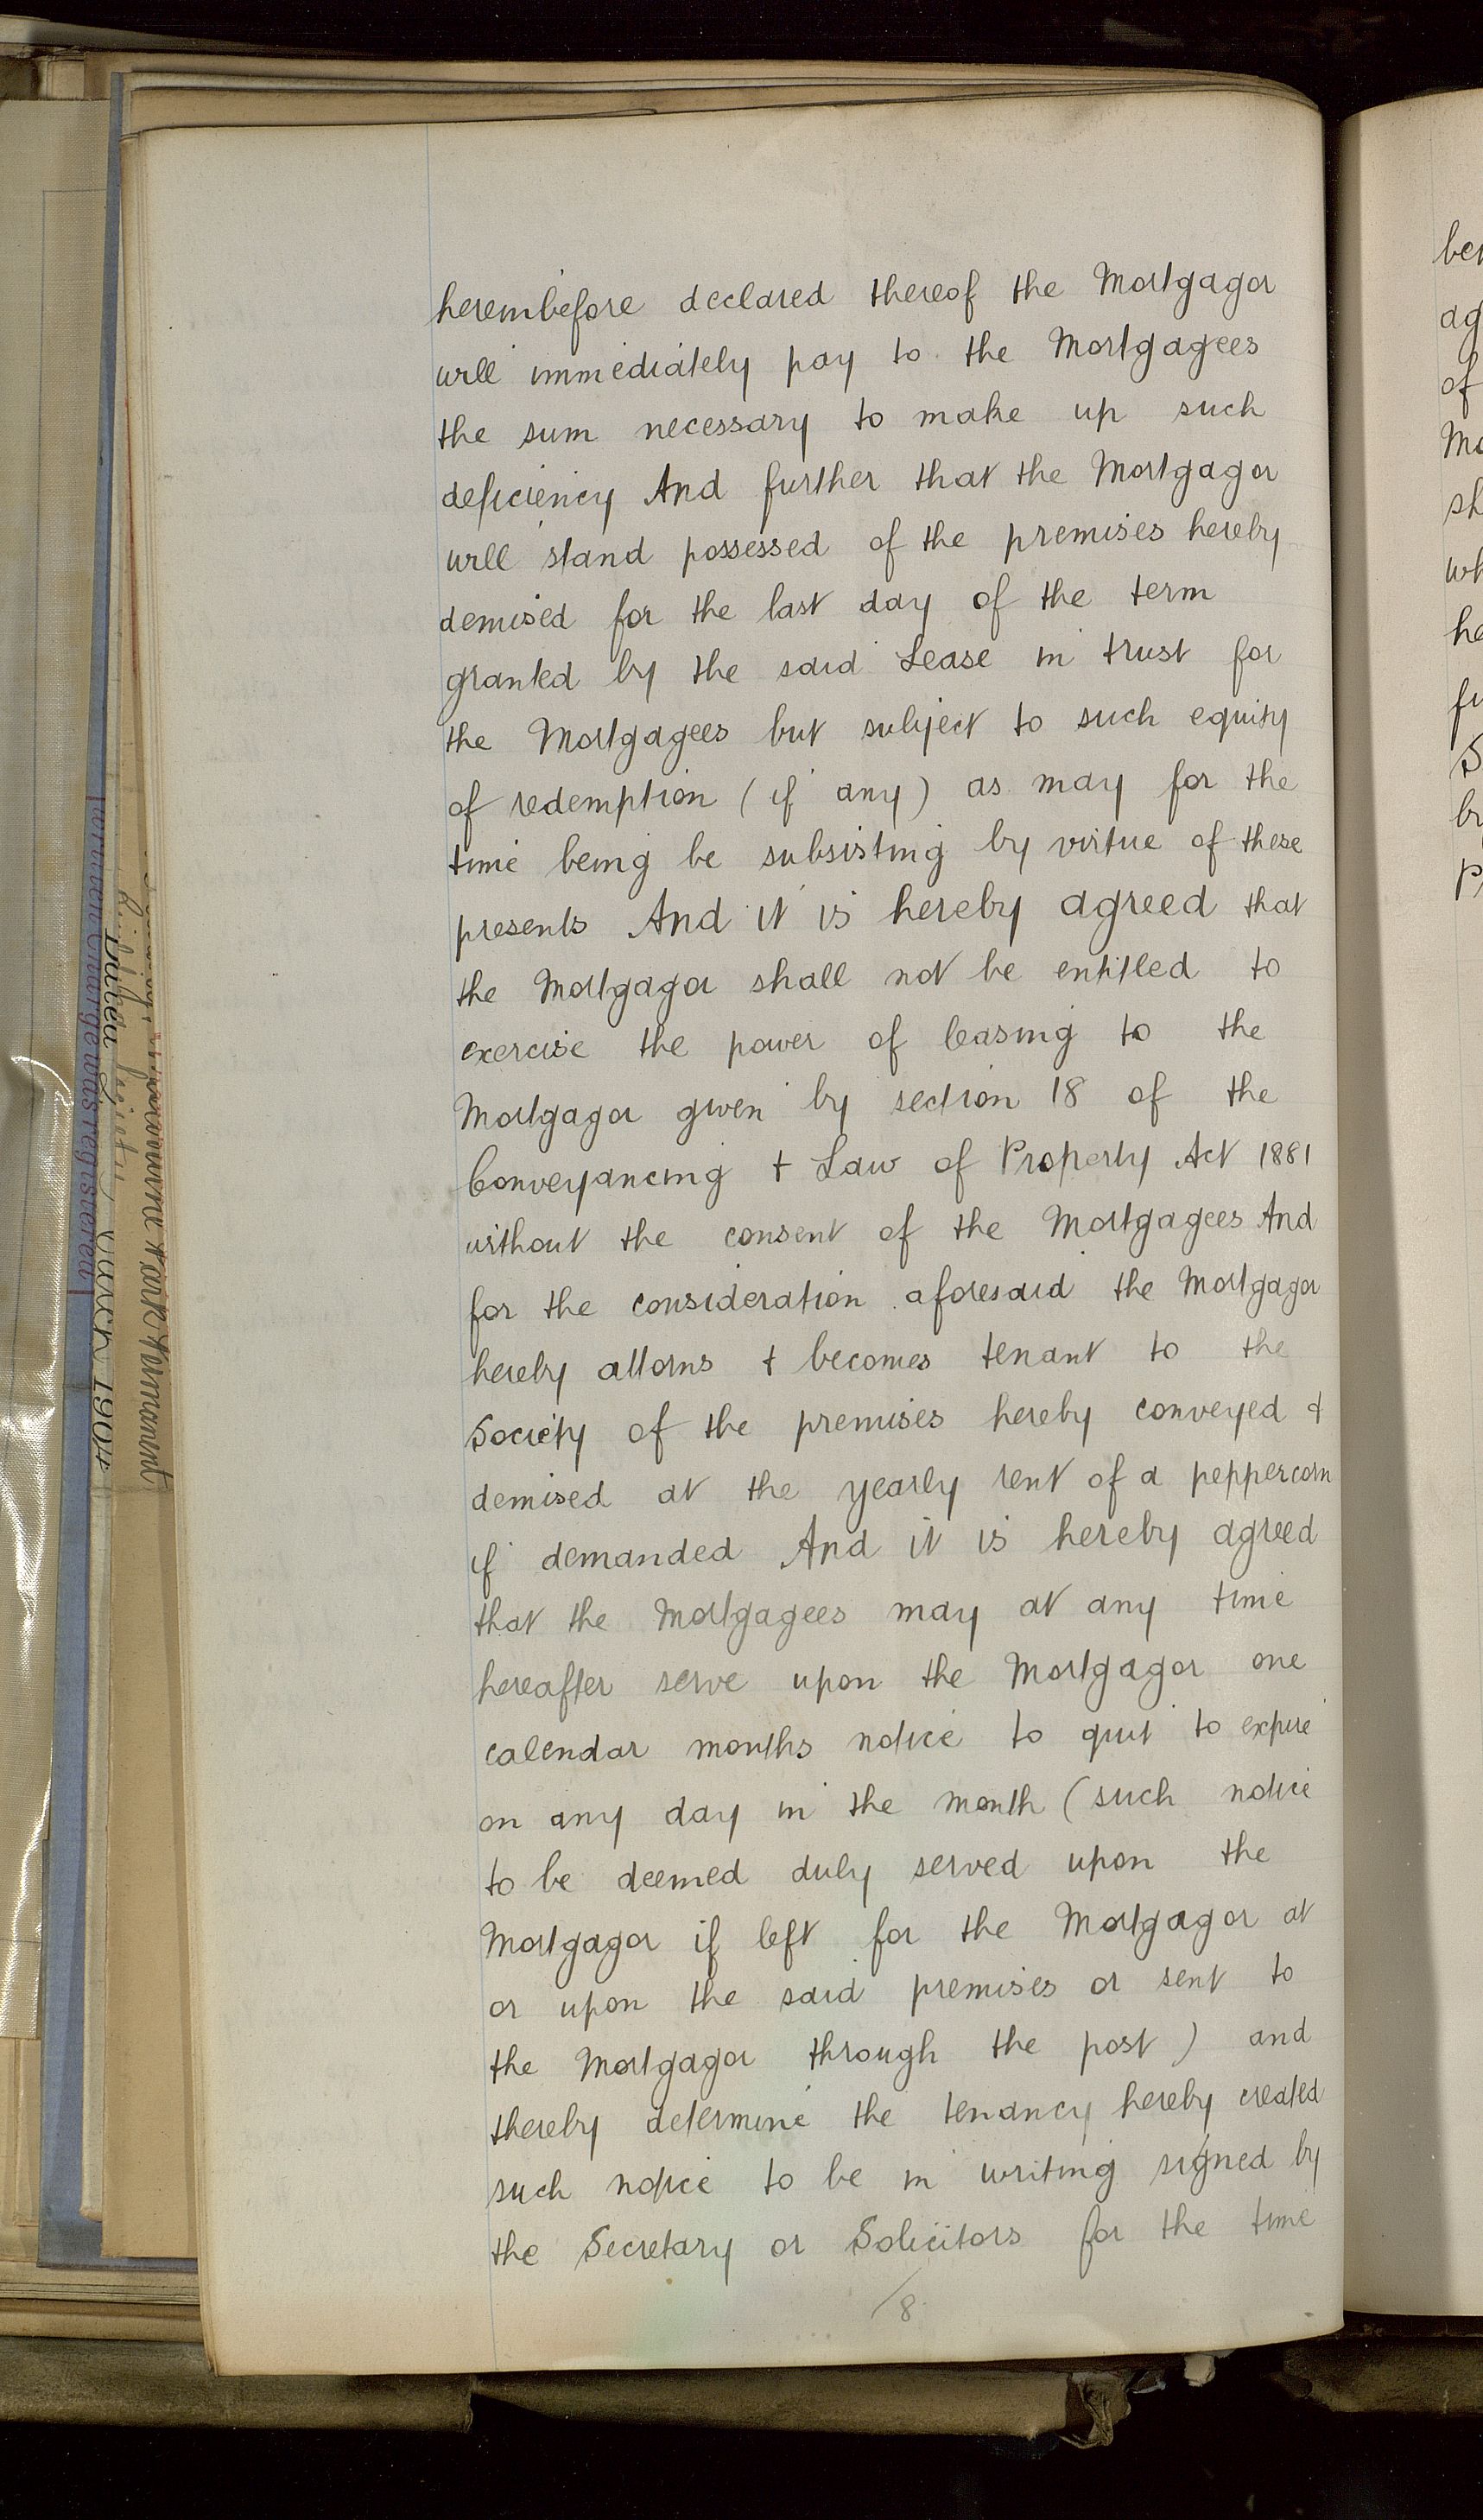 hereinbefore declared thereof the Mortgagor
will immediately pay to the Mortgagees
the sum necessary to make up such
deficiency And further that the Mortgagor
will stand possessed of the premises hereby
demised for the last day of the term
granted by the said Lease in trust for
the Mortgagees but subject to such equity
of redemption (if any) as may for the
time being be subsisting by virtue of these
presents And it is hereby agreed that
the Mortgagor shall not be entitled to
exercise the power of leasing to the
Mortgagor given by section 18 of the
Conveyancing & Law of Property Act 1881
without the consent of the Mortgagees And
for the consideration aforesaid the Mortgagor
hereby attorns & becomes tenant to the
Society of the premises hereby conveyed &
demised at the yearly rent of a peppercorn
if demanded And it is hereby agreed
that the Mortgagees may at any time
hereafter serve upon the Mortgagor one
calendar months notice to quit to expire
on any day in the month (such notice
to be deemed duly served upon the
Mortgagor if left for the Mortgagor at
or upon the said premises or sent to
the Mortgagor through the post) and
thereby determine the tenancy hereby created
such notice to be in writing signed by
the Secretary or Solicitors for the time
/8
Charge was registered
March 1904